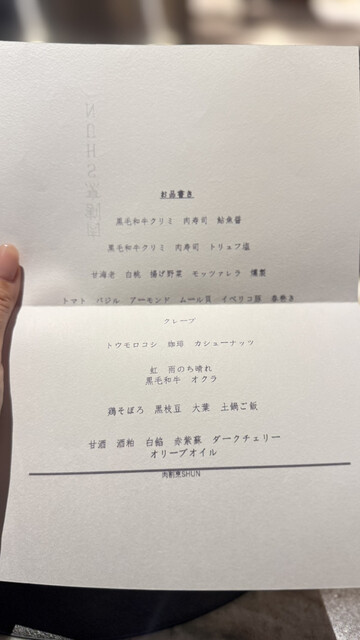 お品書き
黒毛和牛クリミ 肉寿司 鮎魚醤
黒毛和牛クリミ 肉寿司 トリュフ塩
甘海老 白桃 揚げ野菜 モッツァレラ 燻製
トマト バジル アーモンド ムール貝 イベリコ豚 春巻き
クレープ
トウモロコシ 珈琲 カシューナッツ
虹 雨のち晴れ
黒毛和牛 オクラ
鶏そぼろ 黒枝豆 大葉 土鍋ご飯
甘酒 酒粕 白餡 赤紫蘇 ダークチェリー
オリーブオイル
肉割烹SHUN